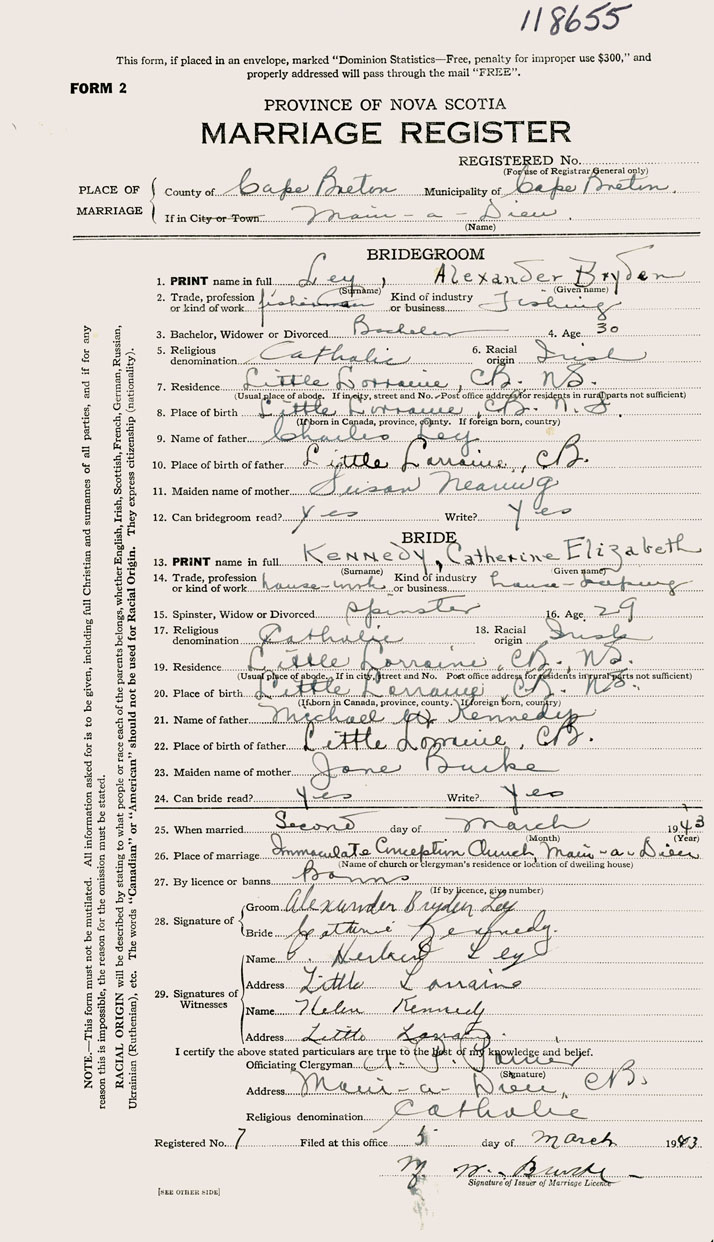 118655
This form, if placed in an envelope, marked "Dominion Statistics—Free, penalty for improper use $300," and
properly addressed will pass through the mail "FREE".
FORM 2
PROVINCE OF NOVA SCOTIA
MARRIAGE REGISTER
REGISTERED No.
(For use of Registrar General only)
PLACE OF MARRIAGE
County of Cape Breton Municipality of Cape Breton.
If in City or Town Main-a-Dieu.
(Name)
BRIDEGROOM
1. PRINT name in full Ley, Alexander Bryden
(Surname) (Given name)
2. Trade, profession or kind of work fisherman Kind of industry or business Fishing
3. Bachelor, Widower or Divorced Bachelor 4. Age 30
5. Religious denomination Catholic 6. Racial origin Irish
7. Residence Little Lorraine, C.B. N.S.
(Usual place of abode. If in city, street and No. Post office address for residents in rural parts not sufficient)
8. Place of birth Little Lorraine, C.B. N.S.
(If born in Canada, province, county. If foreign born, country)
9. Name of father Charles Ley
10. Place of birth of father Little Lorraine, C.B.
11. Maiden name of mother Susan Nearing
12. Can bridegroom read? yes Write? yes
BRIDE
13. PRINT name in full KENNEDY, Catherine Elizabeth
(Surname) (Given name)
14. Trade, profession or kind of work house-work Kind of industry or business house-
15. Spinster, Widow or Divorced Spinster 16. Age 29
17. Religious denomination Catholic 18. Racial origin Irish
19. Residence Little Lorraine, C.B., N.S.
(Usual place of abode. If in city, street and No. Post office address for residents in rural parts not sufficient)
20. Place of birth Little Lorraine, C.B. N.S.
(If born in Canada, province, county. If foreign born, country)
21. Name of father Michael Kennedy
22. Place of birth of father Little Lorraine, C.B.
23. Maiden name of mother Jane Burke
24. Can bride read? yes Write? yes
25. When married Second day of March 1943
(Month) (Year)
26. Place of marriage Immaculate Conception Church, Main-a-Dieu
(Name of church or clergyman's residence or location of dwelling house)
27. By licence or banns Banns
(If by licence, give number)
28. Signature of
Groom Alexander Bryden Ley
Bride Catherine Kennedy.
29. Signatures of Witnesses
Name Herbert Ley
Address Little Lorraine
Name Helen Kennedy
Address Little Lorraine.
I certify the above stated particulars are true to the best of my knowledge and belief.
Officiating Clergyman
(Signature)
Address Main-a-Dieu, C.B.
Religious denomination Catholic
Registered No. 7 Filed at this office 5 day of March 1943
M. W. Burke
Signature of Issuer of Marriage Licence
[SEE OTHER SIDE]
NOTE.—This form must not be mutilated. All information asked for is to be given, including full Christian and surnames of all parties, and if for any
reason this is impossible, the reason for the omission must be stated.
RACIAL ORIGIN will be described by stating to what people or race each of the parents belongs, whether English, Irish, Scottish, French, German, Russian,
Ukrainian (Ruthenian), etc. The words "Canadian" or "American" should not be used for Racial Origin. They express citizenship (nationality).